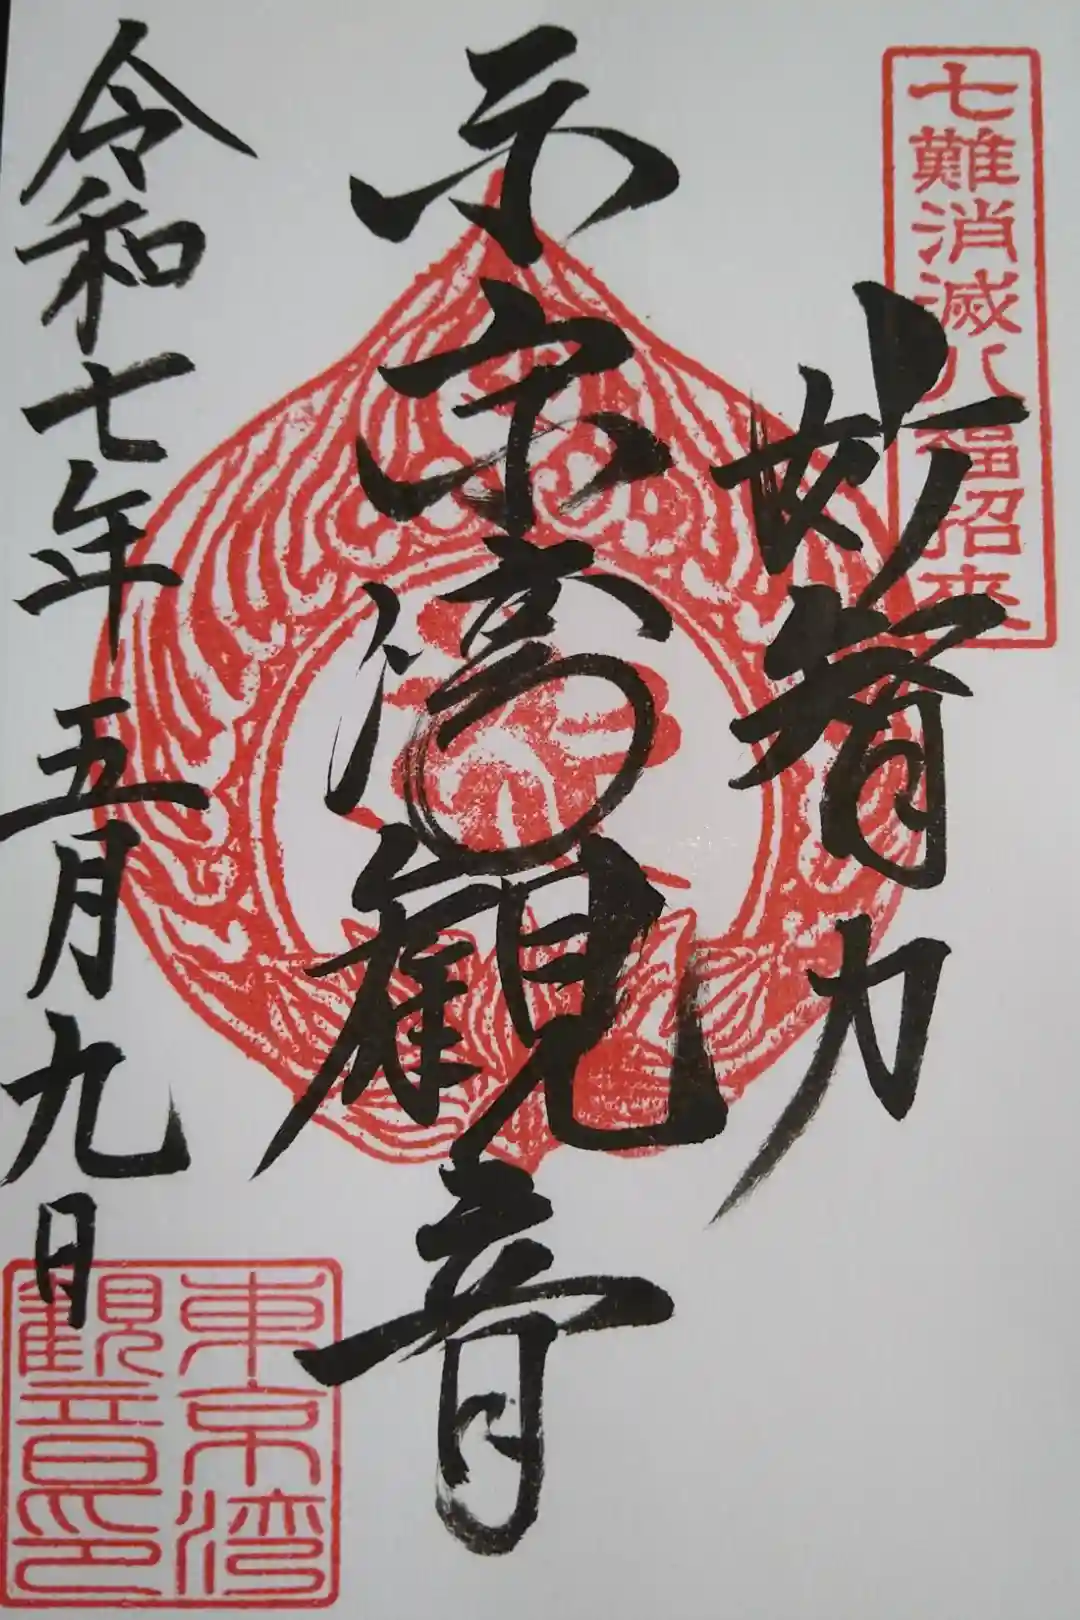 七難消滅八福招来
妙智力
東京湾観音
令和七年五月九日
東京湾
觀音印